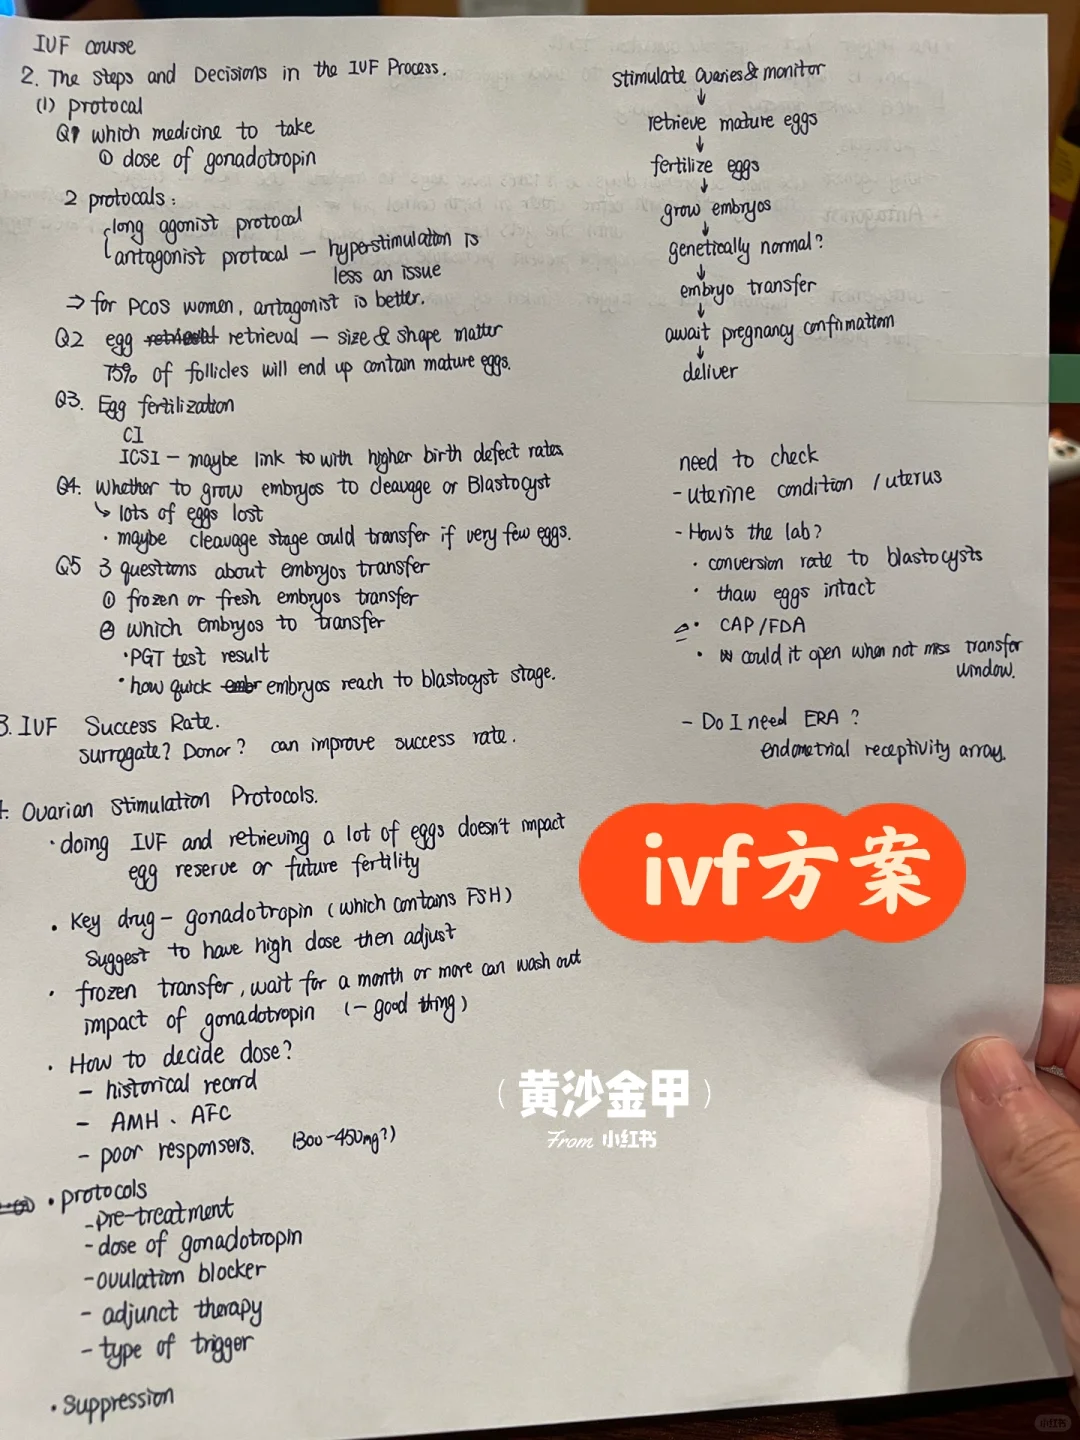 IVF course
2. The Steps and Decisions in the IVF Process.
(1) protocal
Q1 which medicine to take
① dose of gonadotropin
2 protocals:
long agonist protocal
antagonist protocal — hyperstimulation is
less an issue
⇒ for PCOS women, antagonist is better.
Q2 egg retrieval — size & shape matter
75% of follicles will end up contain mature eggs.
Q3. Egg fertilization
CI
ICSI — maybe link to with higher birth defect rates
Q4. Whether to grow embryos to cleavage or Blastocyst
↳ lots of eggs lost
· maybe cleavage stage could transfer if very few eggs.
Q5 3 questions about embryos transfer
① frozen or fresh embryos transfer
② which embryos to transfer
· PGT test result
· how quick embr embryos reach to blastocyst stage.
3. IVF Success Rate.
surrogate? Donor? can improve success rate.
4. Ovarian Stimulation Protocols.
· doing IVF and retrieving a lot of eggs doesn't impact
egg reserve or future fertility
· Key drug — gonadotropin (which contains FSH)
suggest to have high dose then adjust
· frozen transfer, wait for a month or more can wash out
impact of gonadotropin (— good thing)
· How to decide dose?
— historical record
— AMH、AFC
— poor responsers. (300-450mg?)
· protocols
- pre-treatment
- dose of gonadotropin
- ovulation blocker
- adjunct therapy
- type of trigger
· suppression
stimulate ovaries & monitor
↓
retrieve mature eggs
↓
fertilize eggs
↓
grow embryos
↓
genetically normal?
↓
embryo transfer
↓
await pregnancy confirmation
↓
deliver
need to check
- uterine condition / uterus
- How's the lab?
· conversion rate to blastocysts
· thaw eggs intact
· CAP/FDA
· could it open when not miss transfer
window.
- Do I need ERA?
endometrial receptivity array.
ivf方案
(黄沙金甲)
From 小红书
小红书